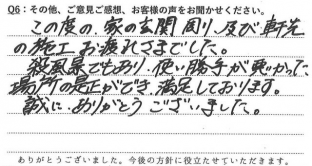 Q6:その他、ご意見ご感想、お客様の声をお聞かせください。
この度の、家の玄関周り、及び軒先
の施工お疲れさまでした。
殺風景でもあり、使い勝手が悪かった
場所の是正ができ、満足しております。
誠に、ありがとうございました。
ありがとうございました。今後の方針に役立たせていただきます。